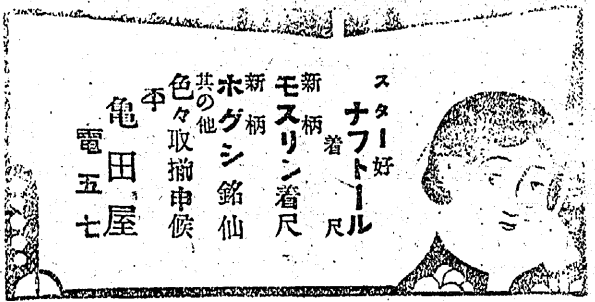 スター好
ナフトール
着尺
新柄
モスリン着尺
新柄
ホグシ銘仙
其の他
色々取揃申候
亀田屋
電五七